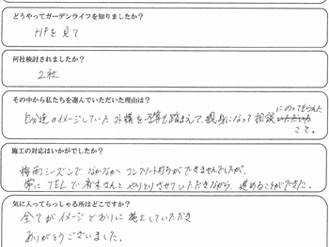 どうやってガーデンライフを知りましたか？
HPを見て
何社検討されましたか？
2社
その中から私たちを選んでいただいた理由は？
自分達のイメージしていた外構を予算も踏まえて、親身になって相談にのってもらえた
こと。
施工の対応はいかがでしたか？
梅雨シーズンでなかなかコンクリート打ちができませんでしたが、
常にTELで さんとやりとりさせていただきながら、進めることができた。
気に入ってらっしゃる所はどこですか？
全てがイメージどおりに施工していただき
ありがとうございました。